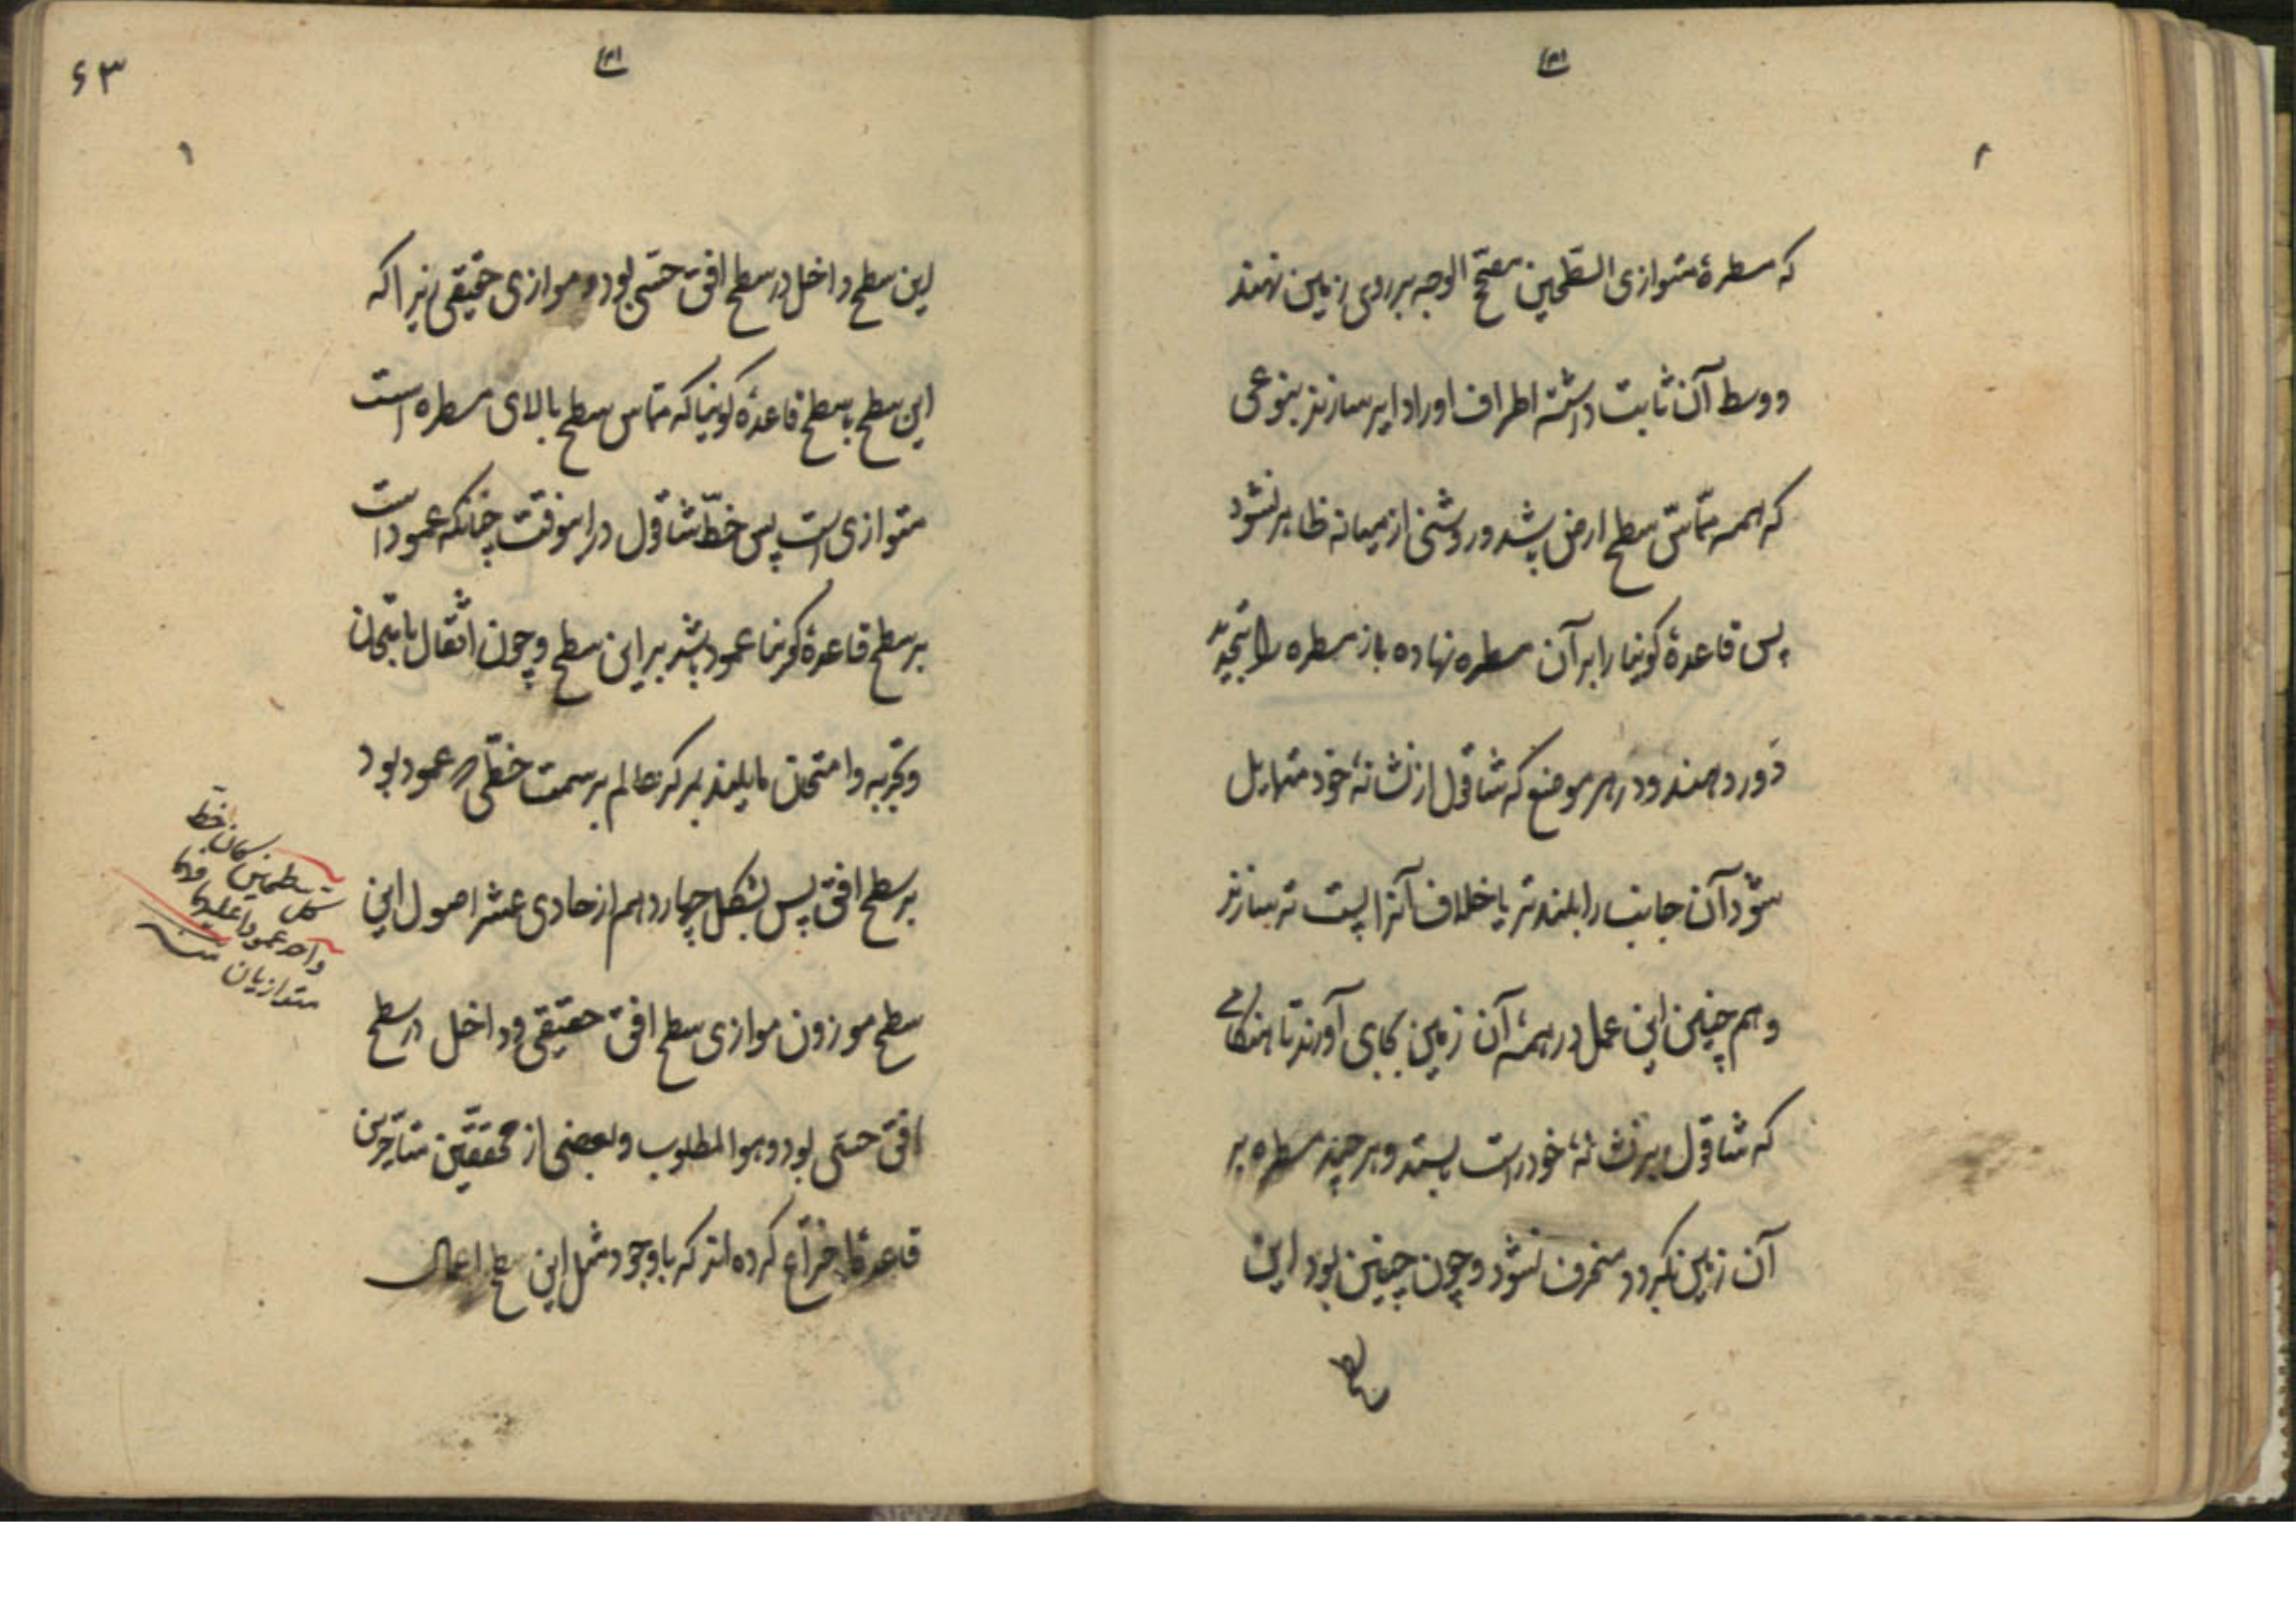 که مسطرهٔ متوازی السطحین مصحح الوجه بر روی زمین نهند
و وسط آن ثابت داشته اطراف او را دایر سازند بنوعی
که همه مماسّ سطح ارض باشد و روشنی از میانه ظاهر نشود
پس قاعدهٔ کونیا را بر آن مسطره نهاده باز مسطره را بتجدید
دَور دهند و در هر موضع که شاقول از نشانهٔ خود متمایل
شود آن جانب را بلندتر یا خلاف آنرا پست تر سازند
و هم چنین این عمل در همهٔ آن زمین بجای آورند تا هنگامی
که شاقول بر نشانهٔ خود راست بایستد و هر چند مسطره بر
آن زمین بگردد منحرف نشود و چون چنین بود این
سطح
۶۳
۱
این سطح داخل در سطح افق حسّی بود و موازی حقیقی زیرا که
این سطح با سطح قاعدهٔ کونیا که مماس سطح بالای مسطره است
متوازی است پس خطّ شاقول در اینوقت چنانکه عمود است
بر سطح قاعدهٔ کونیا عمود باشد بر این سطح و چون اثقال بامتحان
و تجربه و امتحان مایلند بمرکز عالم بر سمت خطی که عمود بود
بر سطح افق پس بشکل چهاردهم از حادی عشر اصول این
سطح موزون موازی سطح افق حقیقی و داخل در سطح
افق حسّی بود و هو المطلوب و بعضی از محققین متأخرین
قاعدهٔ اختراع کرده‌اند که با وجود مثل این سطح اعمال
کل سطحین کان خط
واحد عمودا علیهما فهما
متوازیان